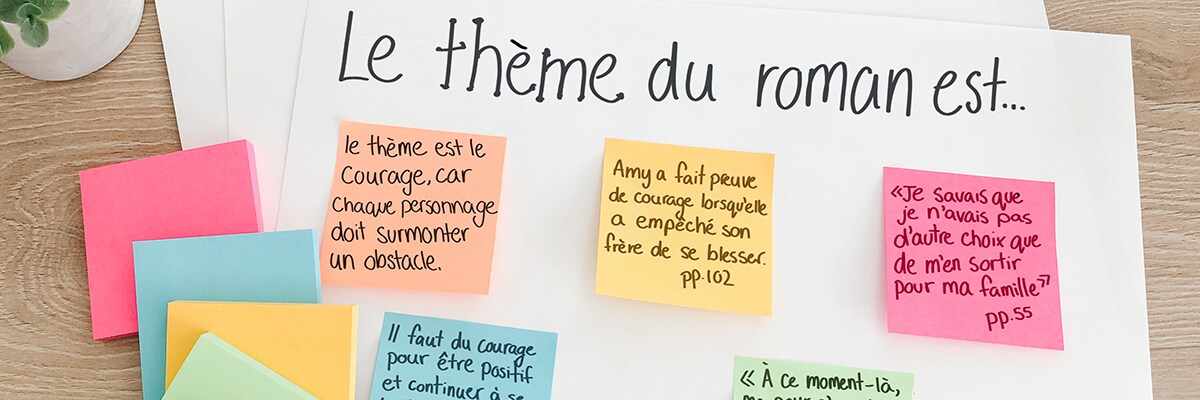 Le thème du roman est...
le thème est le
courage, car
chaque personnage
doit surmonter
un obstacle.
Amy a fait preuve
de courage lorsqu'elle
a empêché son
frère de se blesser.
pp.102
«Je savais que
je n'avais pas
d'autre choix que
de m'en sortir
pour ma famille»
pp.55
Il faut du courage
pour être positif
et continuer à se
« À ce moment-là,